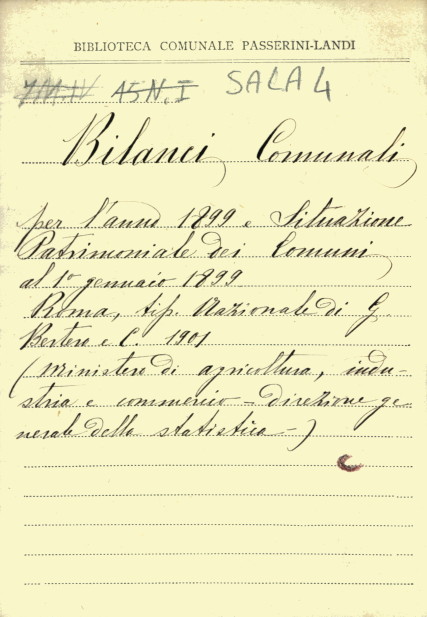 BIBLIOTECA COMUNALE PASSERINI-LANDI
15 N. I SALA 4
Bilanci Comunali
per l'anno 1899 e Situazione
Patrimoniale dei Comuni
al 1° gennaio 1899
Roma, tip. Nazionale di G.
Bertero e C. 1901
(Ministero di agricoltura, indu-
stria e commercio - Direzione ge-
nerale della statistica -)